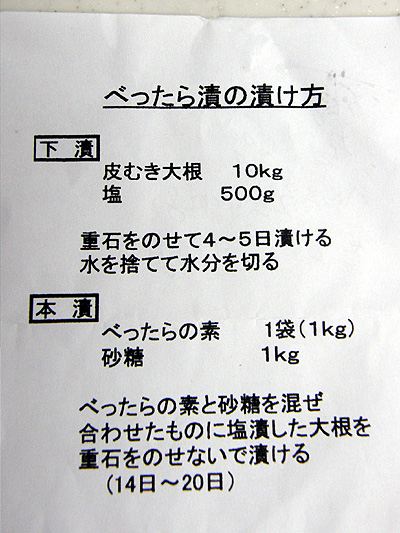 べったら漬の漬け方
下 漬
皮むき大根 10kg
塩 500g
重石をのせて4～5日漬ける
水を捨てて水分を切る
本 漬
べったらの素 1袋(1kg)
砂糖 1kg
べったらの素と砂糖を混ぜ
合わせたものに塩漬した大根を
重石をのせないで漬ける
(14日～20日)